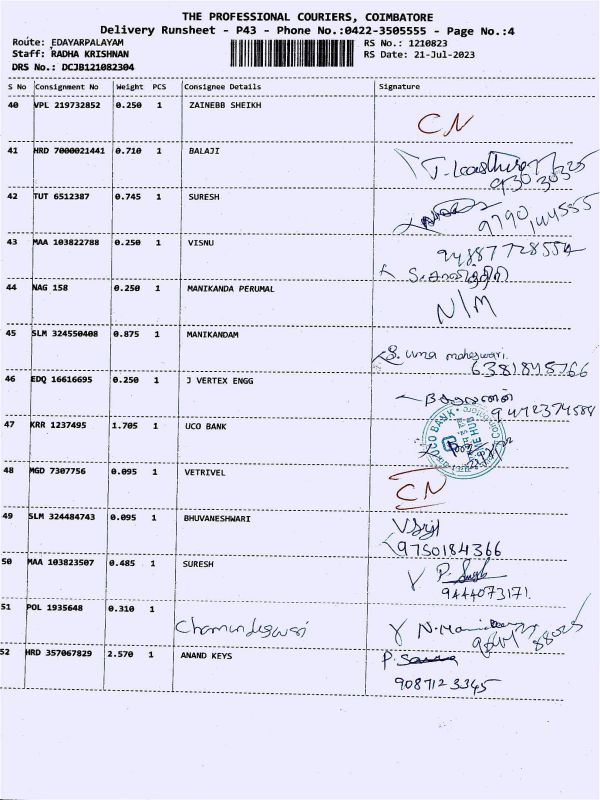 THE PROFESSIONAL COURIERS, COIMBATORE
Delivery Runsheet - P43 - Phone No.:0422-3505555 - Page No.:4
Route: EDAYARPALAYAM RS No.: 1210823
Staff: RADHA KRISHNAN RS Date: 21-Jul-2023
DRS No.: DCJB121082304
S No Consignment No Weight PCS Consignee Details Signature
40 VPL 219732852 0.250 1 ZAINEBB SHEIKH
CN
41 HRD 7000021441 0.710 1 BALAJI
42 TUT 6512387 0.745 1 SURESH
9790144555
43 MAA 103822788 0.250 1 VISNU
44 NAG 158 0.250 1 MANIKANDA PERUMAL
N/M
45 SLM 324550408 0.875 1 MANIKANDAM
S. uma maheswari
6381845766
46 EDQ 16616695 0.250 1 J VERTEX ENGG
9442374588
47 KRR 1237495 1.705 1 UCO BANK
UCO BANK
48 MGD 7307756 0.095 1 VETRIVEL
CN
49 SLM 324484743 0.095 1 BHUVANESHWARI
9750184366
50 MAA 103823507 0.485 1 SURESH
9444073171
51 POL 1935648 0.310 1
Chamundeswari
52 HRD 357067829 2.570 1 ANAND KEYS
9087123345